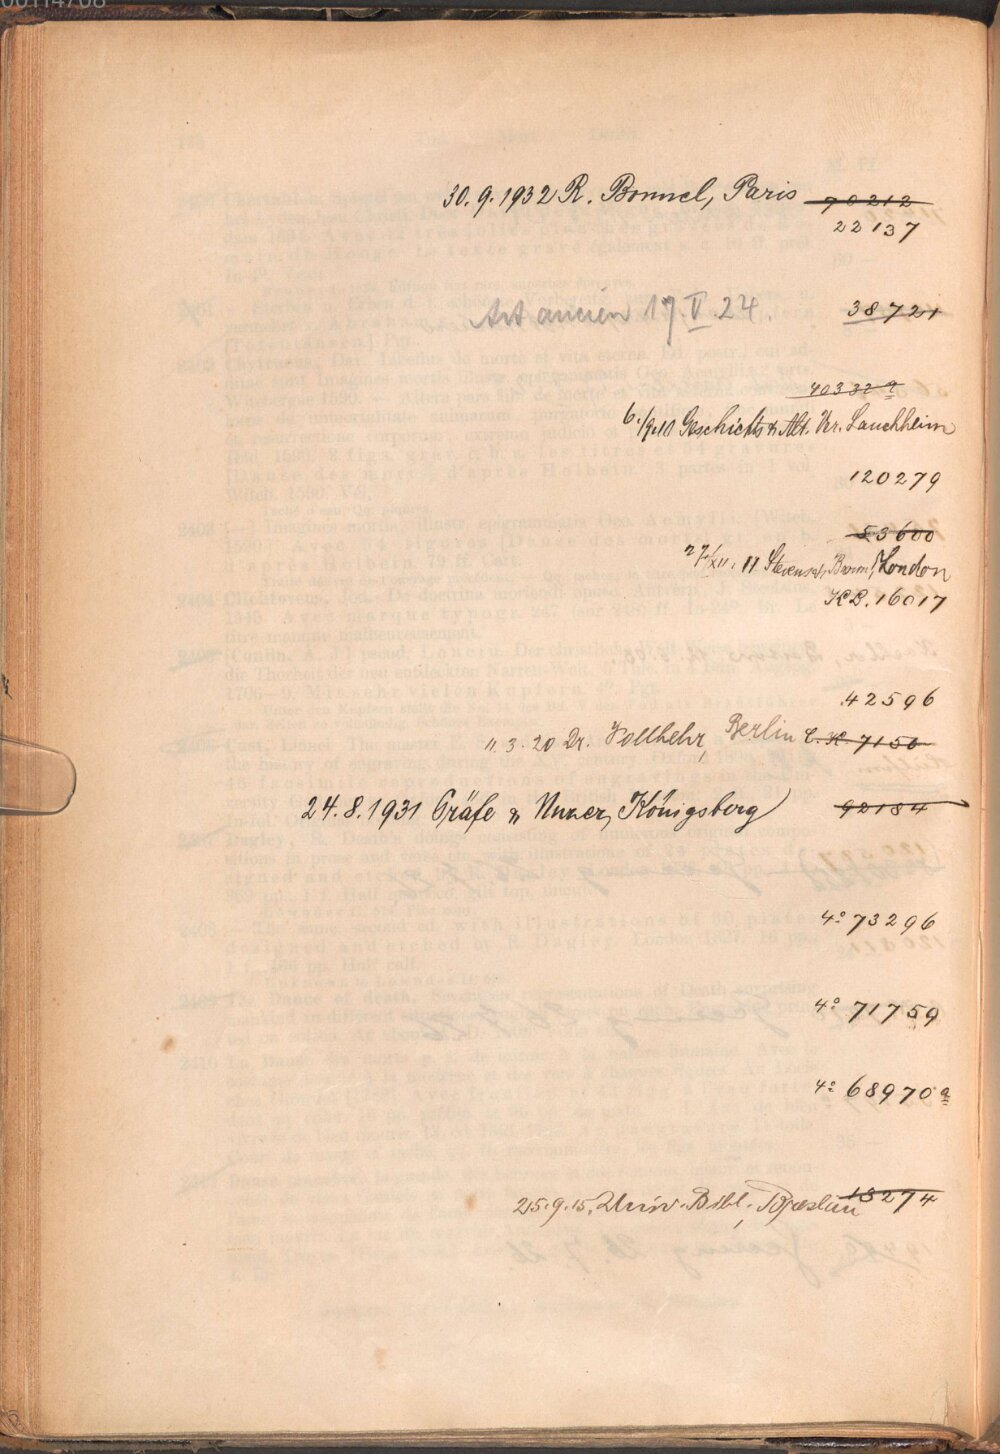 00114708
30.9.1932 R. Bonnel, Paris 70212
22137
Art ancien 17.V.24. 38721
40332 a
6./9.10 Geschichts & Alt. Ver. Lauchheim
120279
53600
27/XII. 11 London
KB. 16017
42596
11.3.20 Dr. Vollbehr, Berlin C. K. 7150
24.8.1931 Gräfe u Unzer, Königsberg 92184
4° 73296
4° 71759
4° 68970 a
25.9.15. Univ. Bibl. Breslau 18274